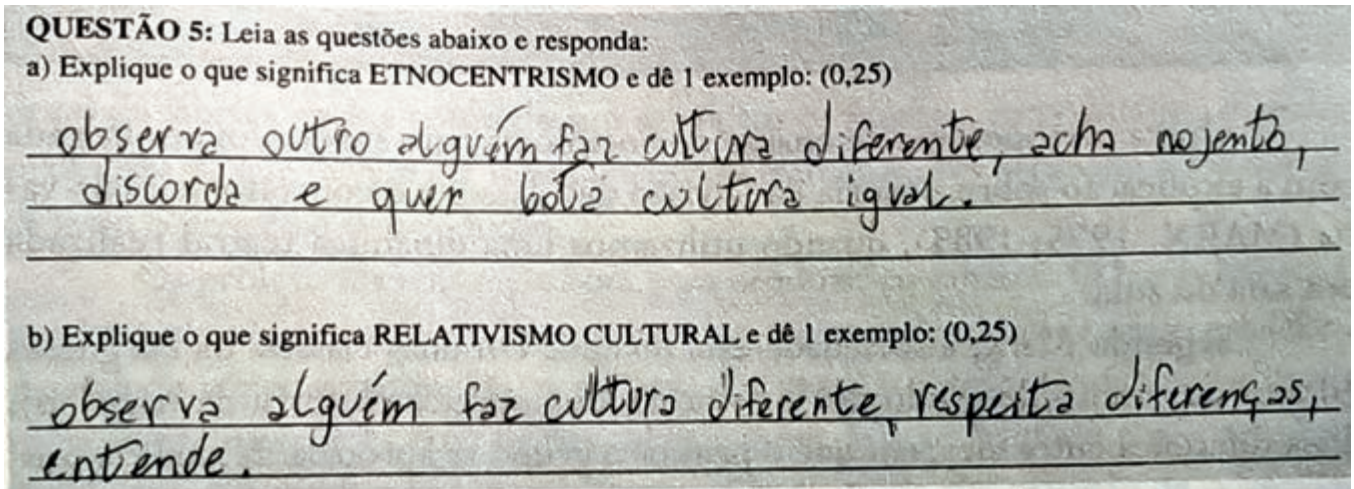 QUESTÃO 5: Leia as questões abaixo e responda:
a) Explique o que significa ETNOCENTRISMO e dê 1 exemplo: (0,25)
observa outro alguém faz cultura diferente, acha nojento,
discorda e quer bota cultura igual.
b) Explique o que significa RELATIVISMO CULTURAL e dê 1 exemplo: (0,25)
observa alguém faz cultura diferente, respeita diferenças,
entende.